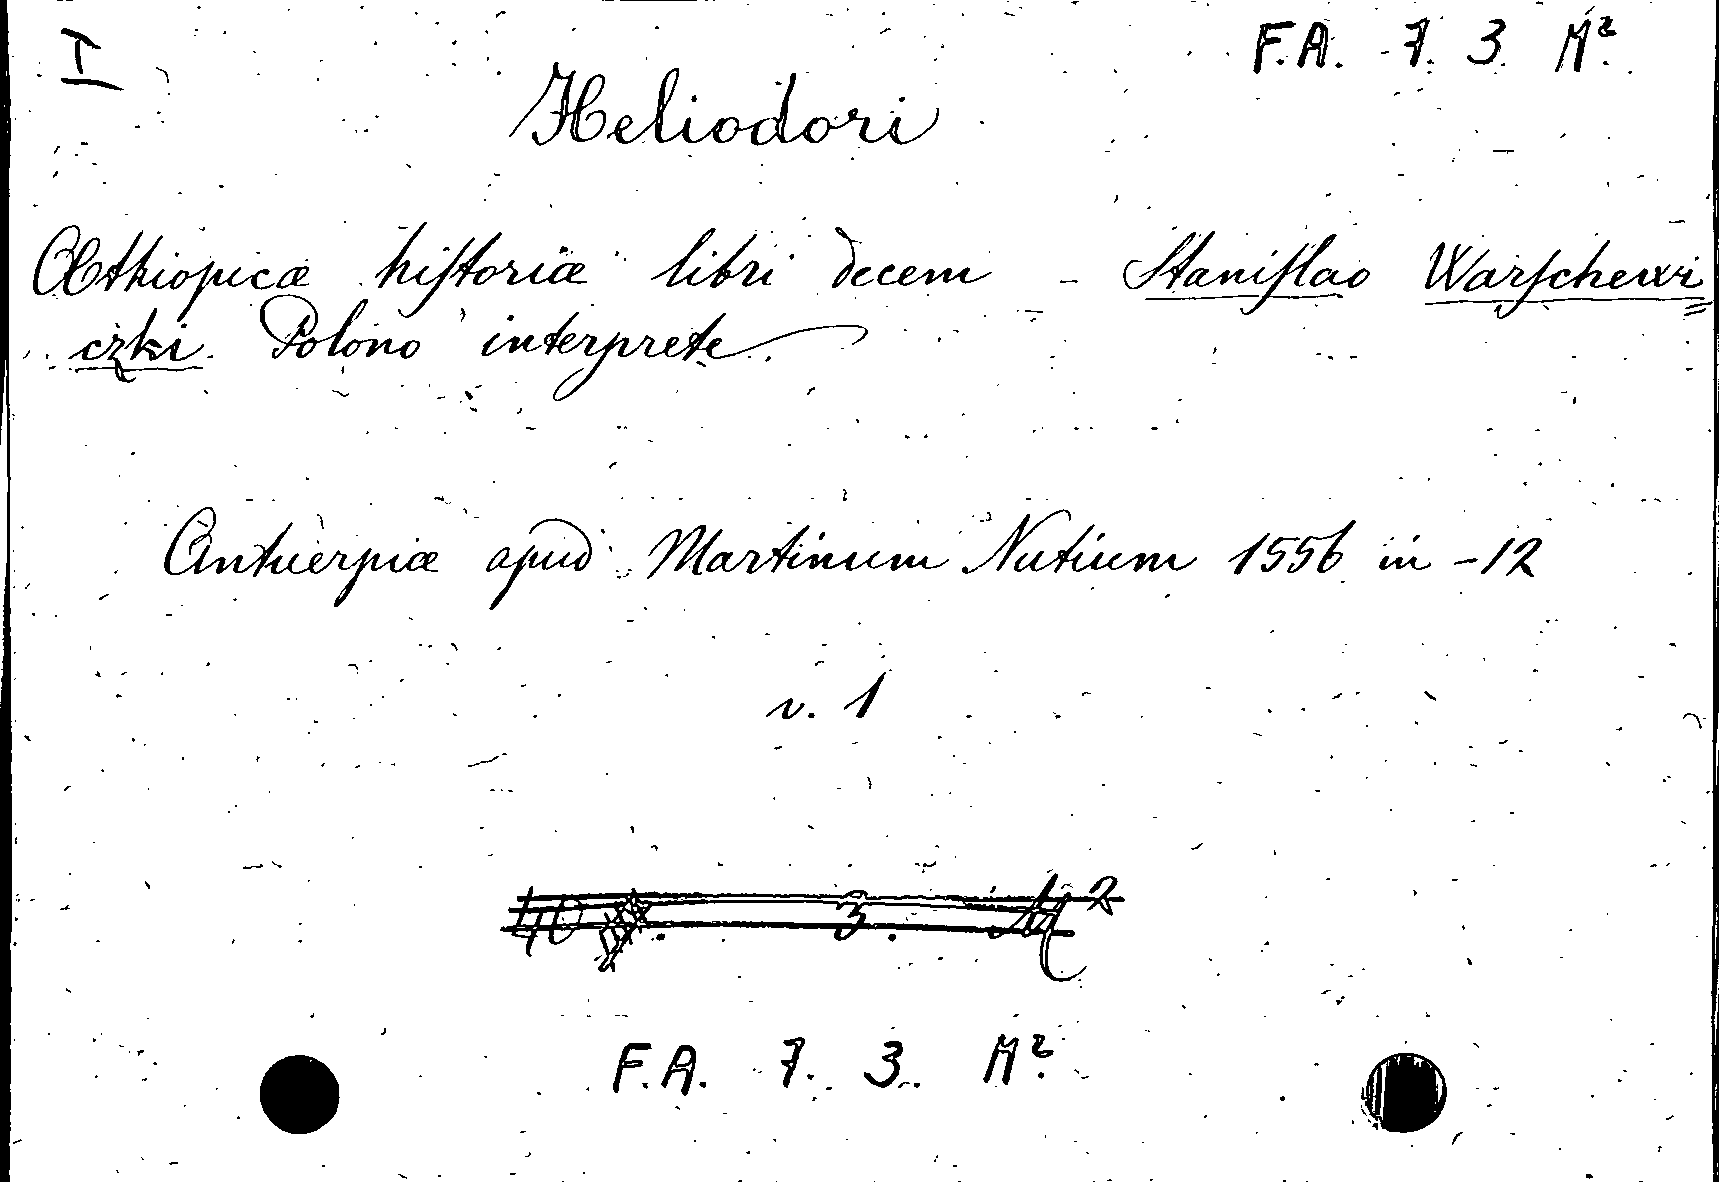 I
F.A. 7. 3. M².
Heliodori
Æthiopicæ hiſtoriæ libri decem - Staniſlao Warſchewi=
czki Polono interprete.
Antuerpiæ apud Martinum Nutium 1556 in -12
v. 1
40 . 3. M²
F.A. 7. 3. M².